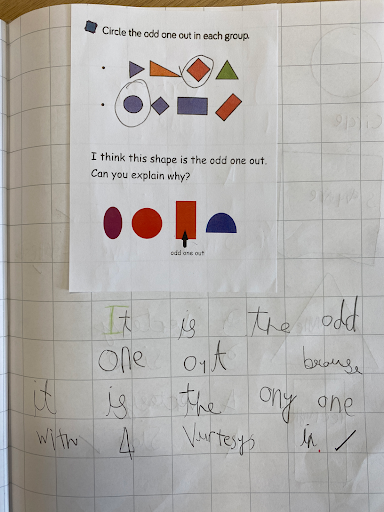 Circle the odd one out in each group.
I think this shape is the odd one out.
Can you explain why?
odd one out
It is the odd
one out browse
it is the ony one
with 4 Vurtesys in. ✓